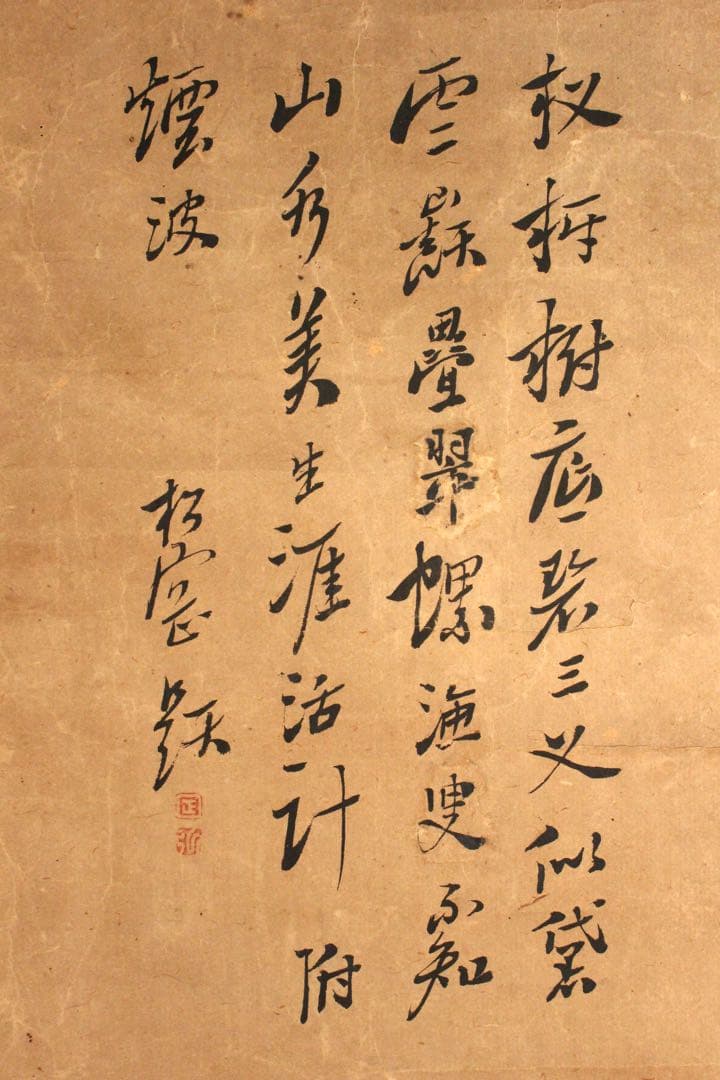 杈枒樹底碧三叉似黛
雲巔疊翠螺漁叟不知
山水美生涯活計附
煙波
松 題